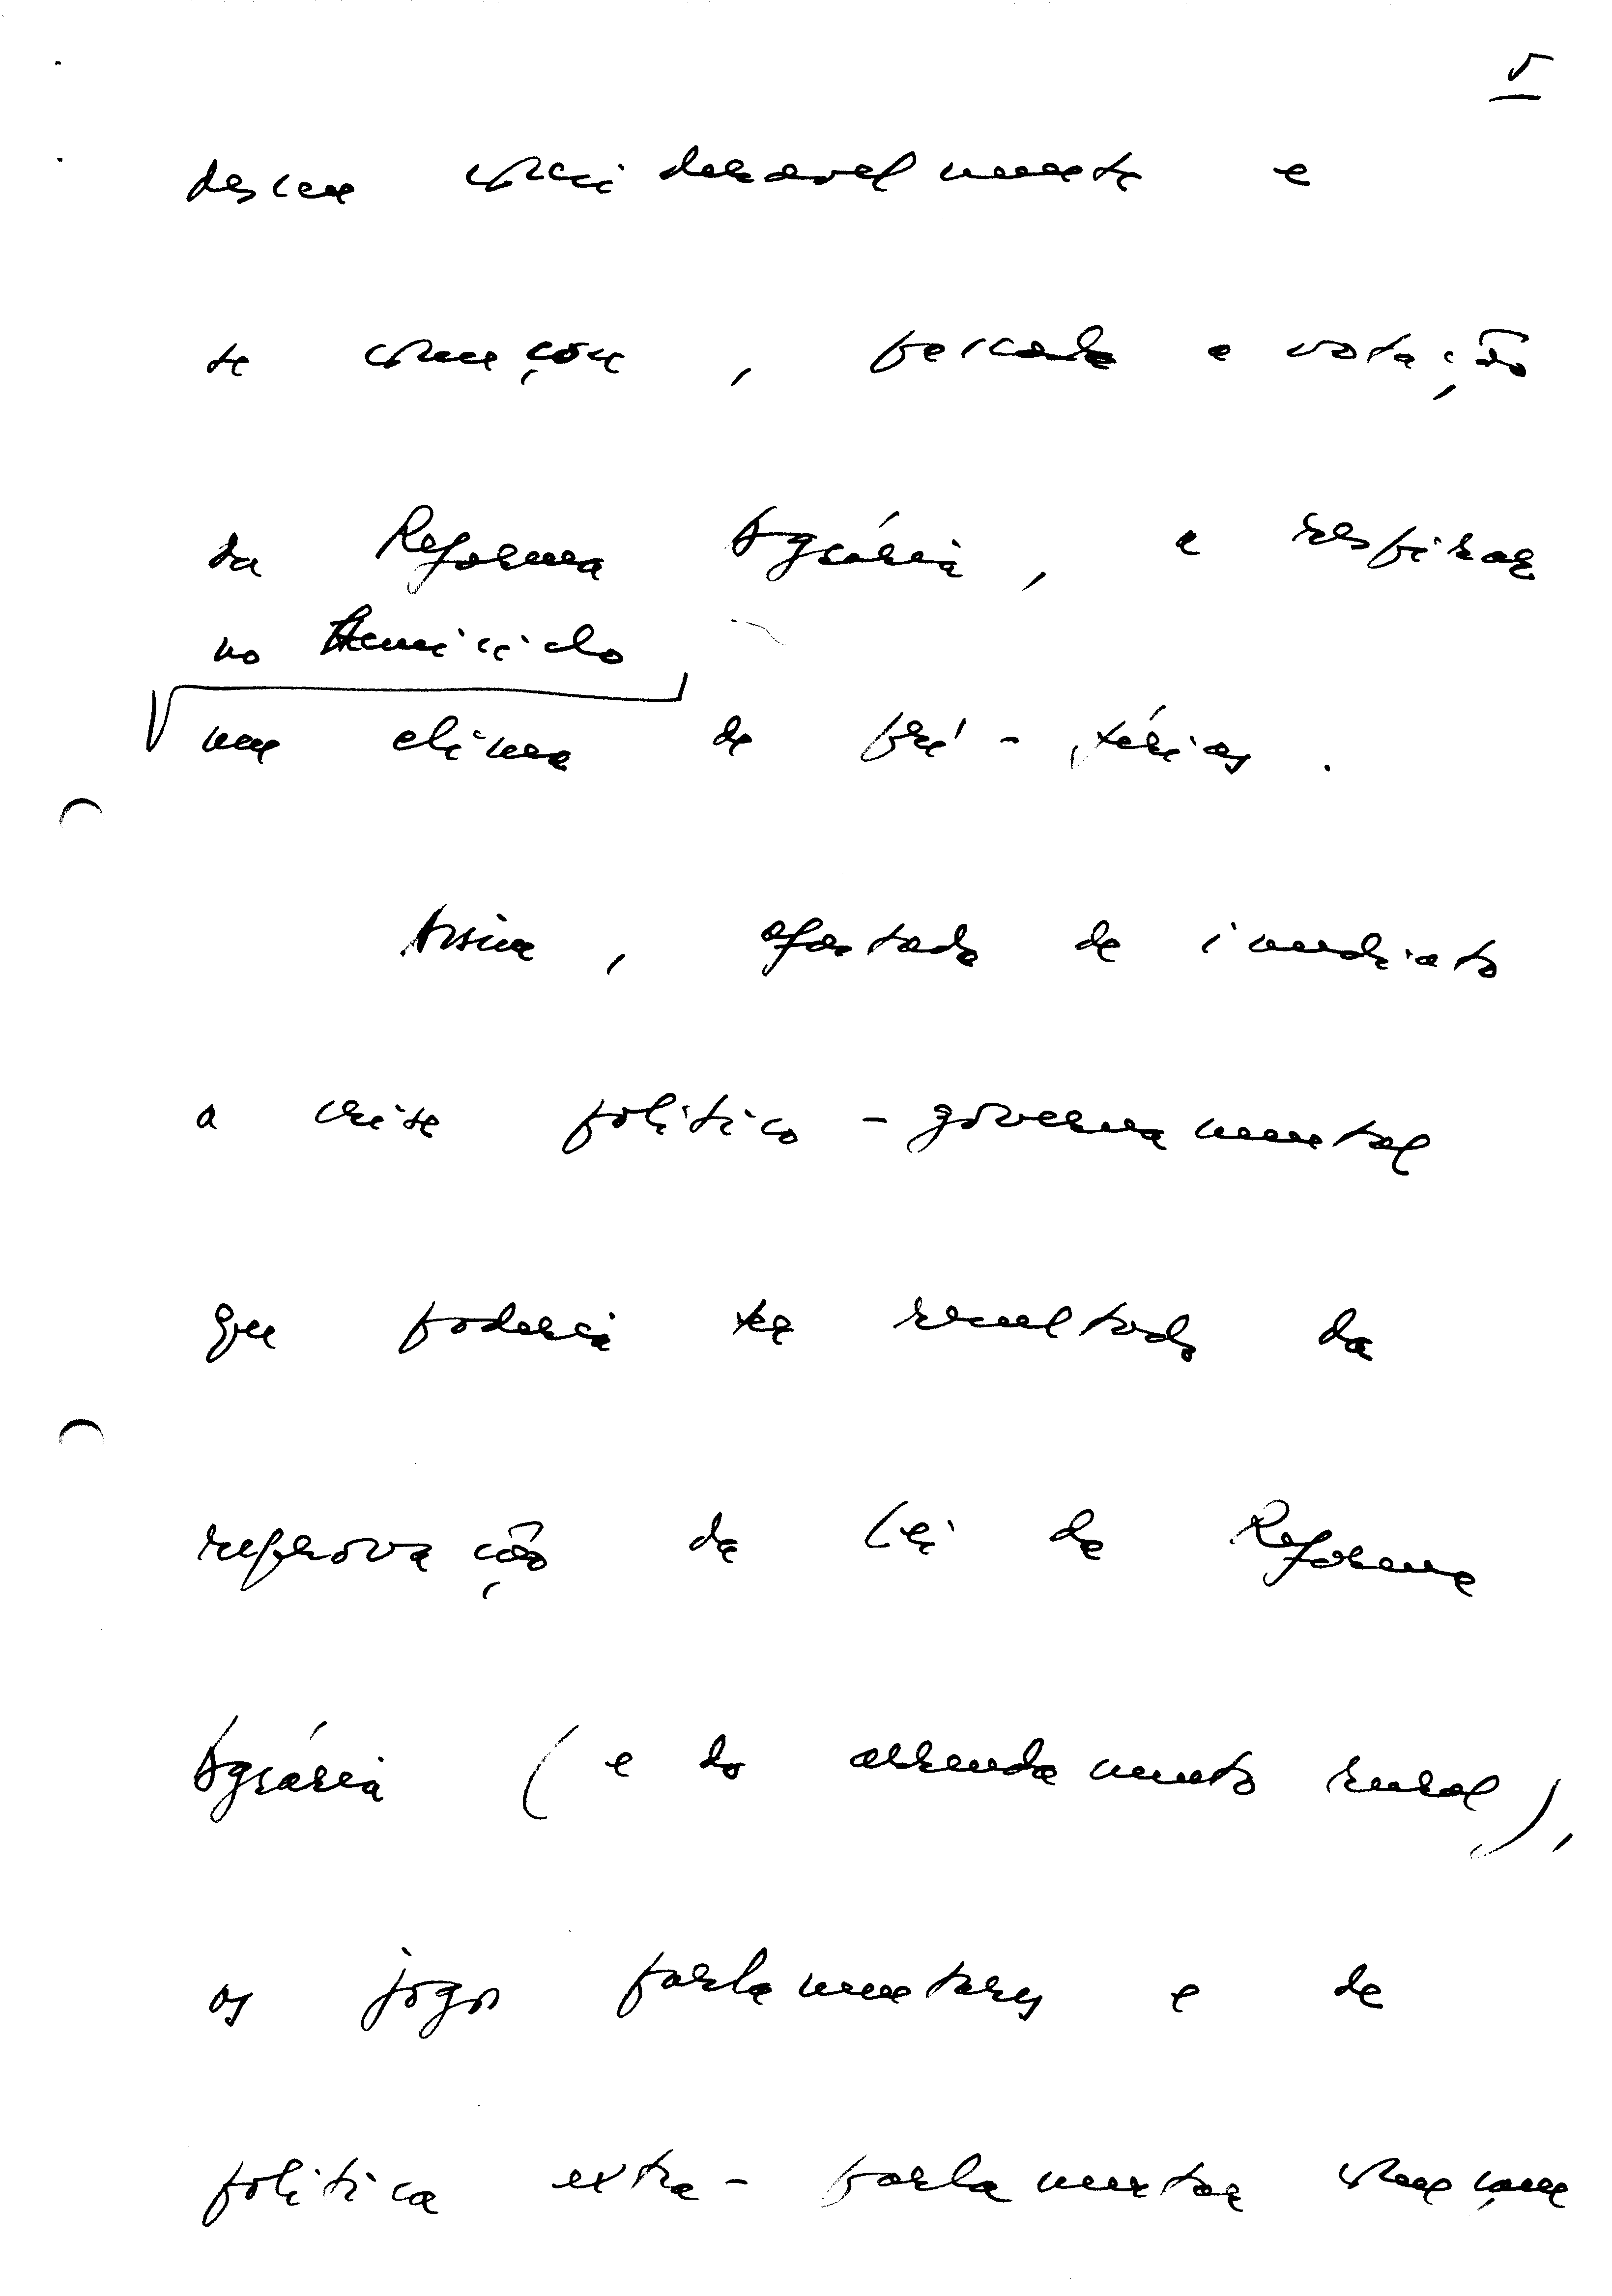 5
desceu consideravelmente e
se começou, feita a votação
da Reforma Agrária, a respirar
no Hemiciclo
um clima de pré-férias.
Assim, afastada de imediato
a crise político-governamental
que poderia ter resultado da
reprovação da Lei da Reforma
Agrária (e do arrendamento rural),
os jogos parlamentares e de
política extra-parlamentar começam